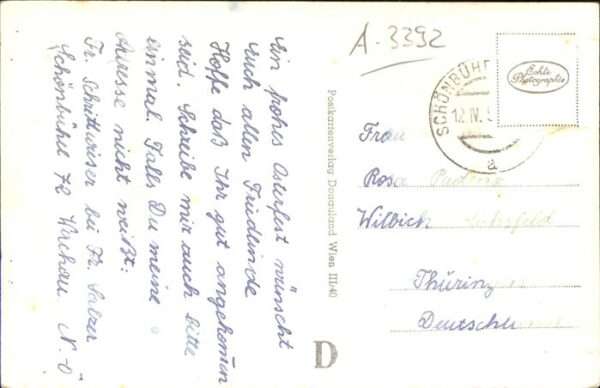 A-3392
Ein frohes Osterfest wünscht
euch allen Friedlinde
Hoffe daß Ihr gut angekomm̄en
seid. Schreibe mir auch bitte
einmal. Falls Du meine
Adresse nicht weißt:
Fr. Schrittwieser bei Fr. Salzer
Schönbühel 72 Wachau N.-Ö
Postkartenverlag Donauland Wien III/40
D
SCHÖNBÜH
12.IV.
a
Echte
Photographie
Frau
Rosa
Wilbich
Thüring
Deutschl